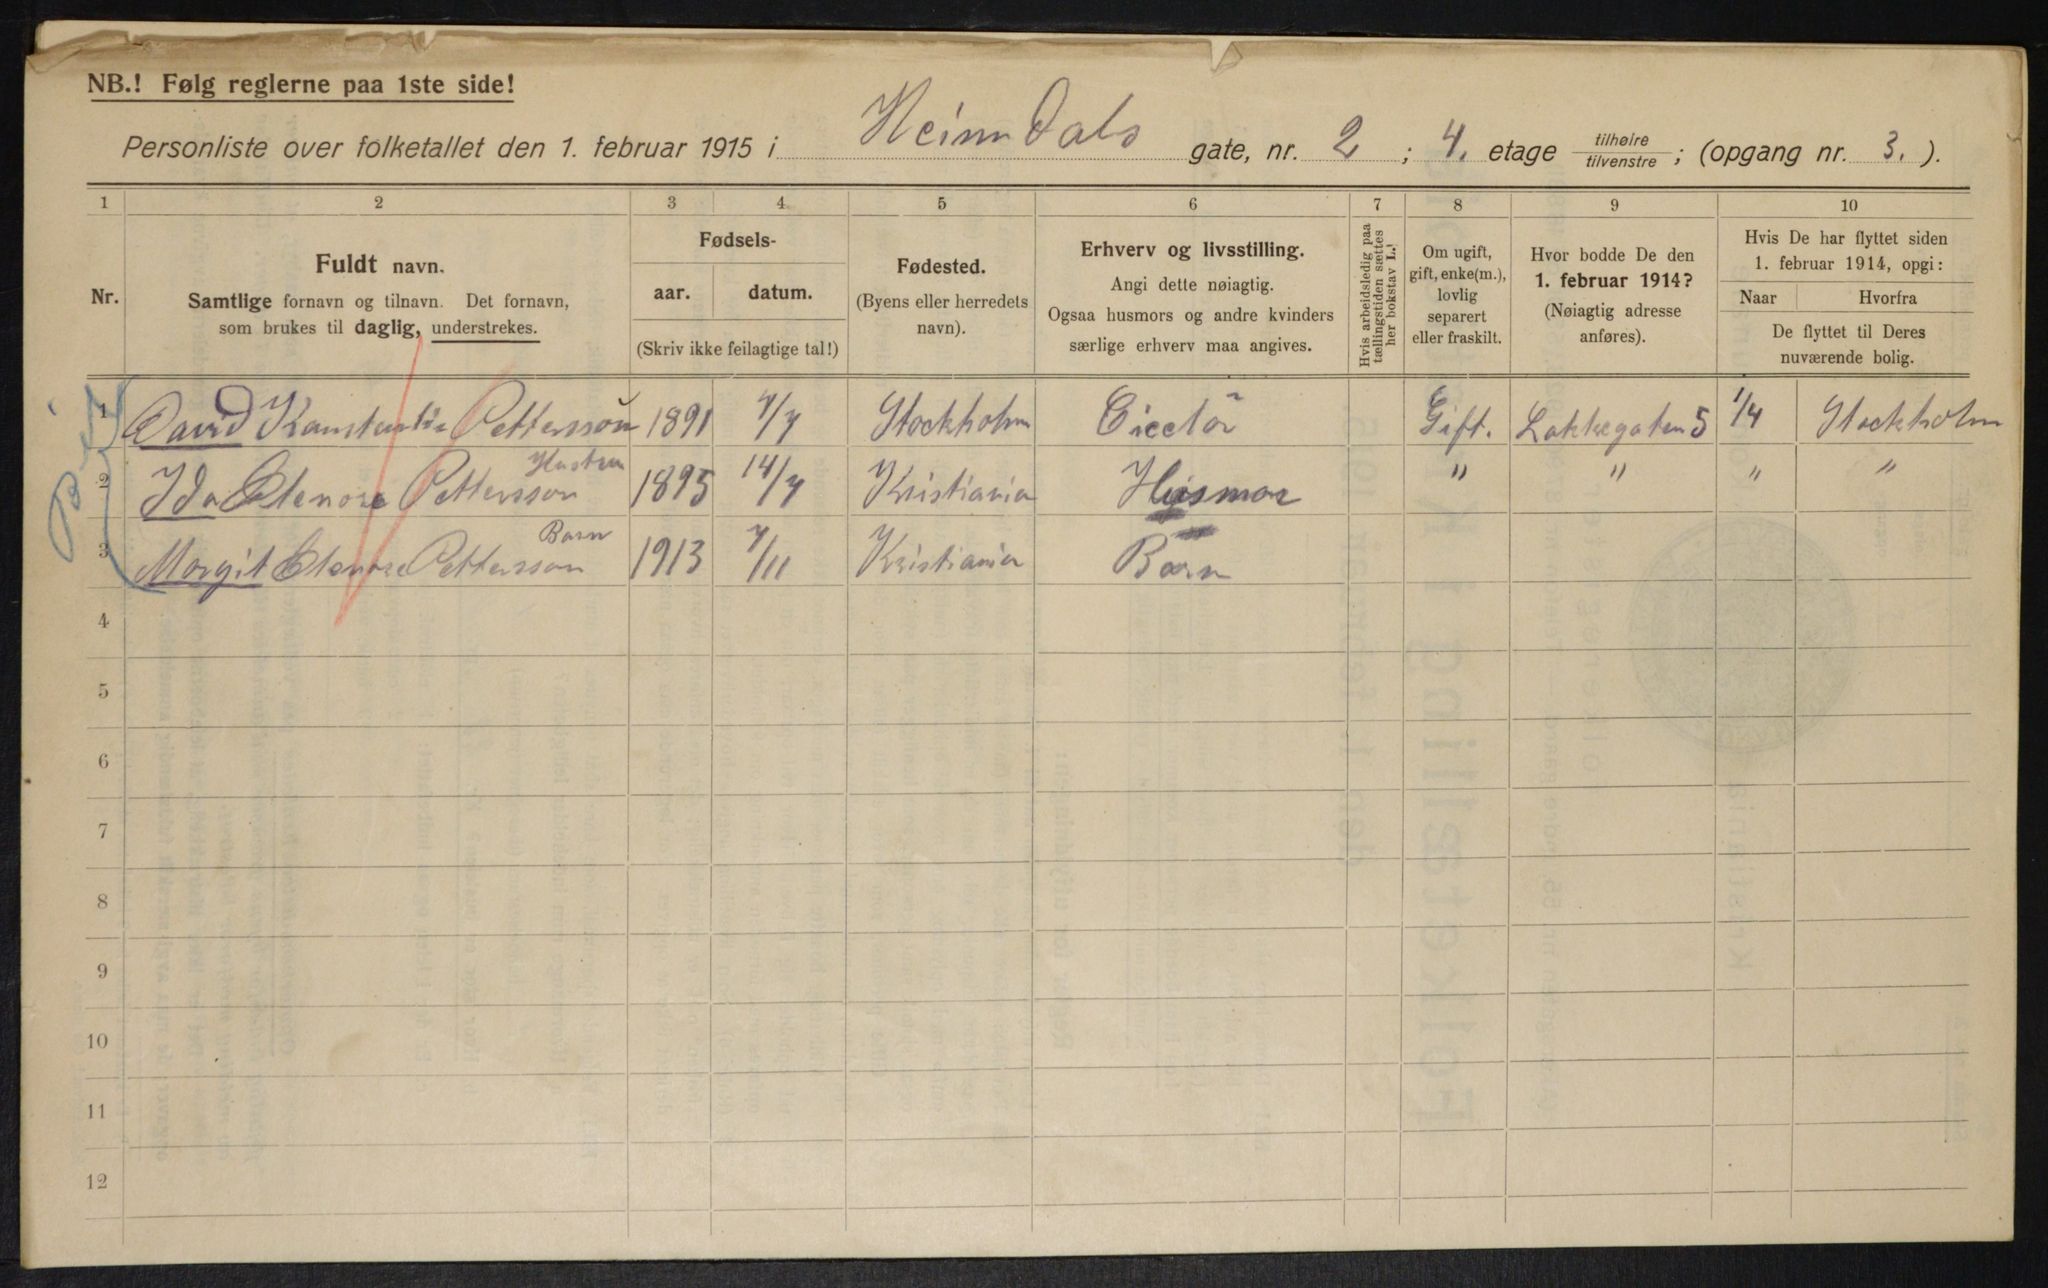 NB.! Følg reglerne paa 1ste side!
Personliste over folketallet den 1. februar 1915 i Heimdals gate, nr. 2 ; 4. etage tilhøire tilvenstre ; (opgang nr. 3. ).
1 2 3 4 5 6 7 8 9 10
Nr.
Fuldt navn.
Samtlige fornavn og tilnavn. Det fornavn,
som brukes til daglig, understrekes.
Fødsels-
aar. datum.
(Skriv ikke feilagtige tal!)
Fødested.
(Byens eller herredets
navn).
Erhverv og livsstilling.
Angi dette nøiagtig.
Ogsaa husmors og andre kvinders
særlige erhverv maa angives.
Hvis arbeidsledig paa
tællingstiden sættes
her bokstav L.!
Om ugift,
gift, enke(m.),
lovlig
separert
eller fraskilt.
Hvor bodde De den
1. februar 1914?
(Nøiagtig adresse
anføres).
Hvis De har flyttet siden
1. februar 1914, opgi:
Naar Hvorfra
De flyttet til Deres
nuværende bolig.
1 David Pettersson 1891 4/4 Stockholm Gift. Lakkegaten 5 1/4 Stockholm
Hustru
2 Ida Elenore Pettersson 1895 14/4 Kristiania Husmor " " " "
Barn
3 Margit Elenore Pettersson 1913 4/11 Kristiania Barn
4
5
6
7
8
9
10
11
12